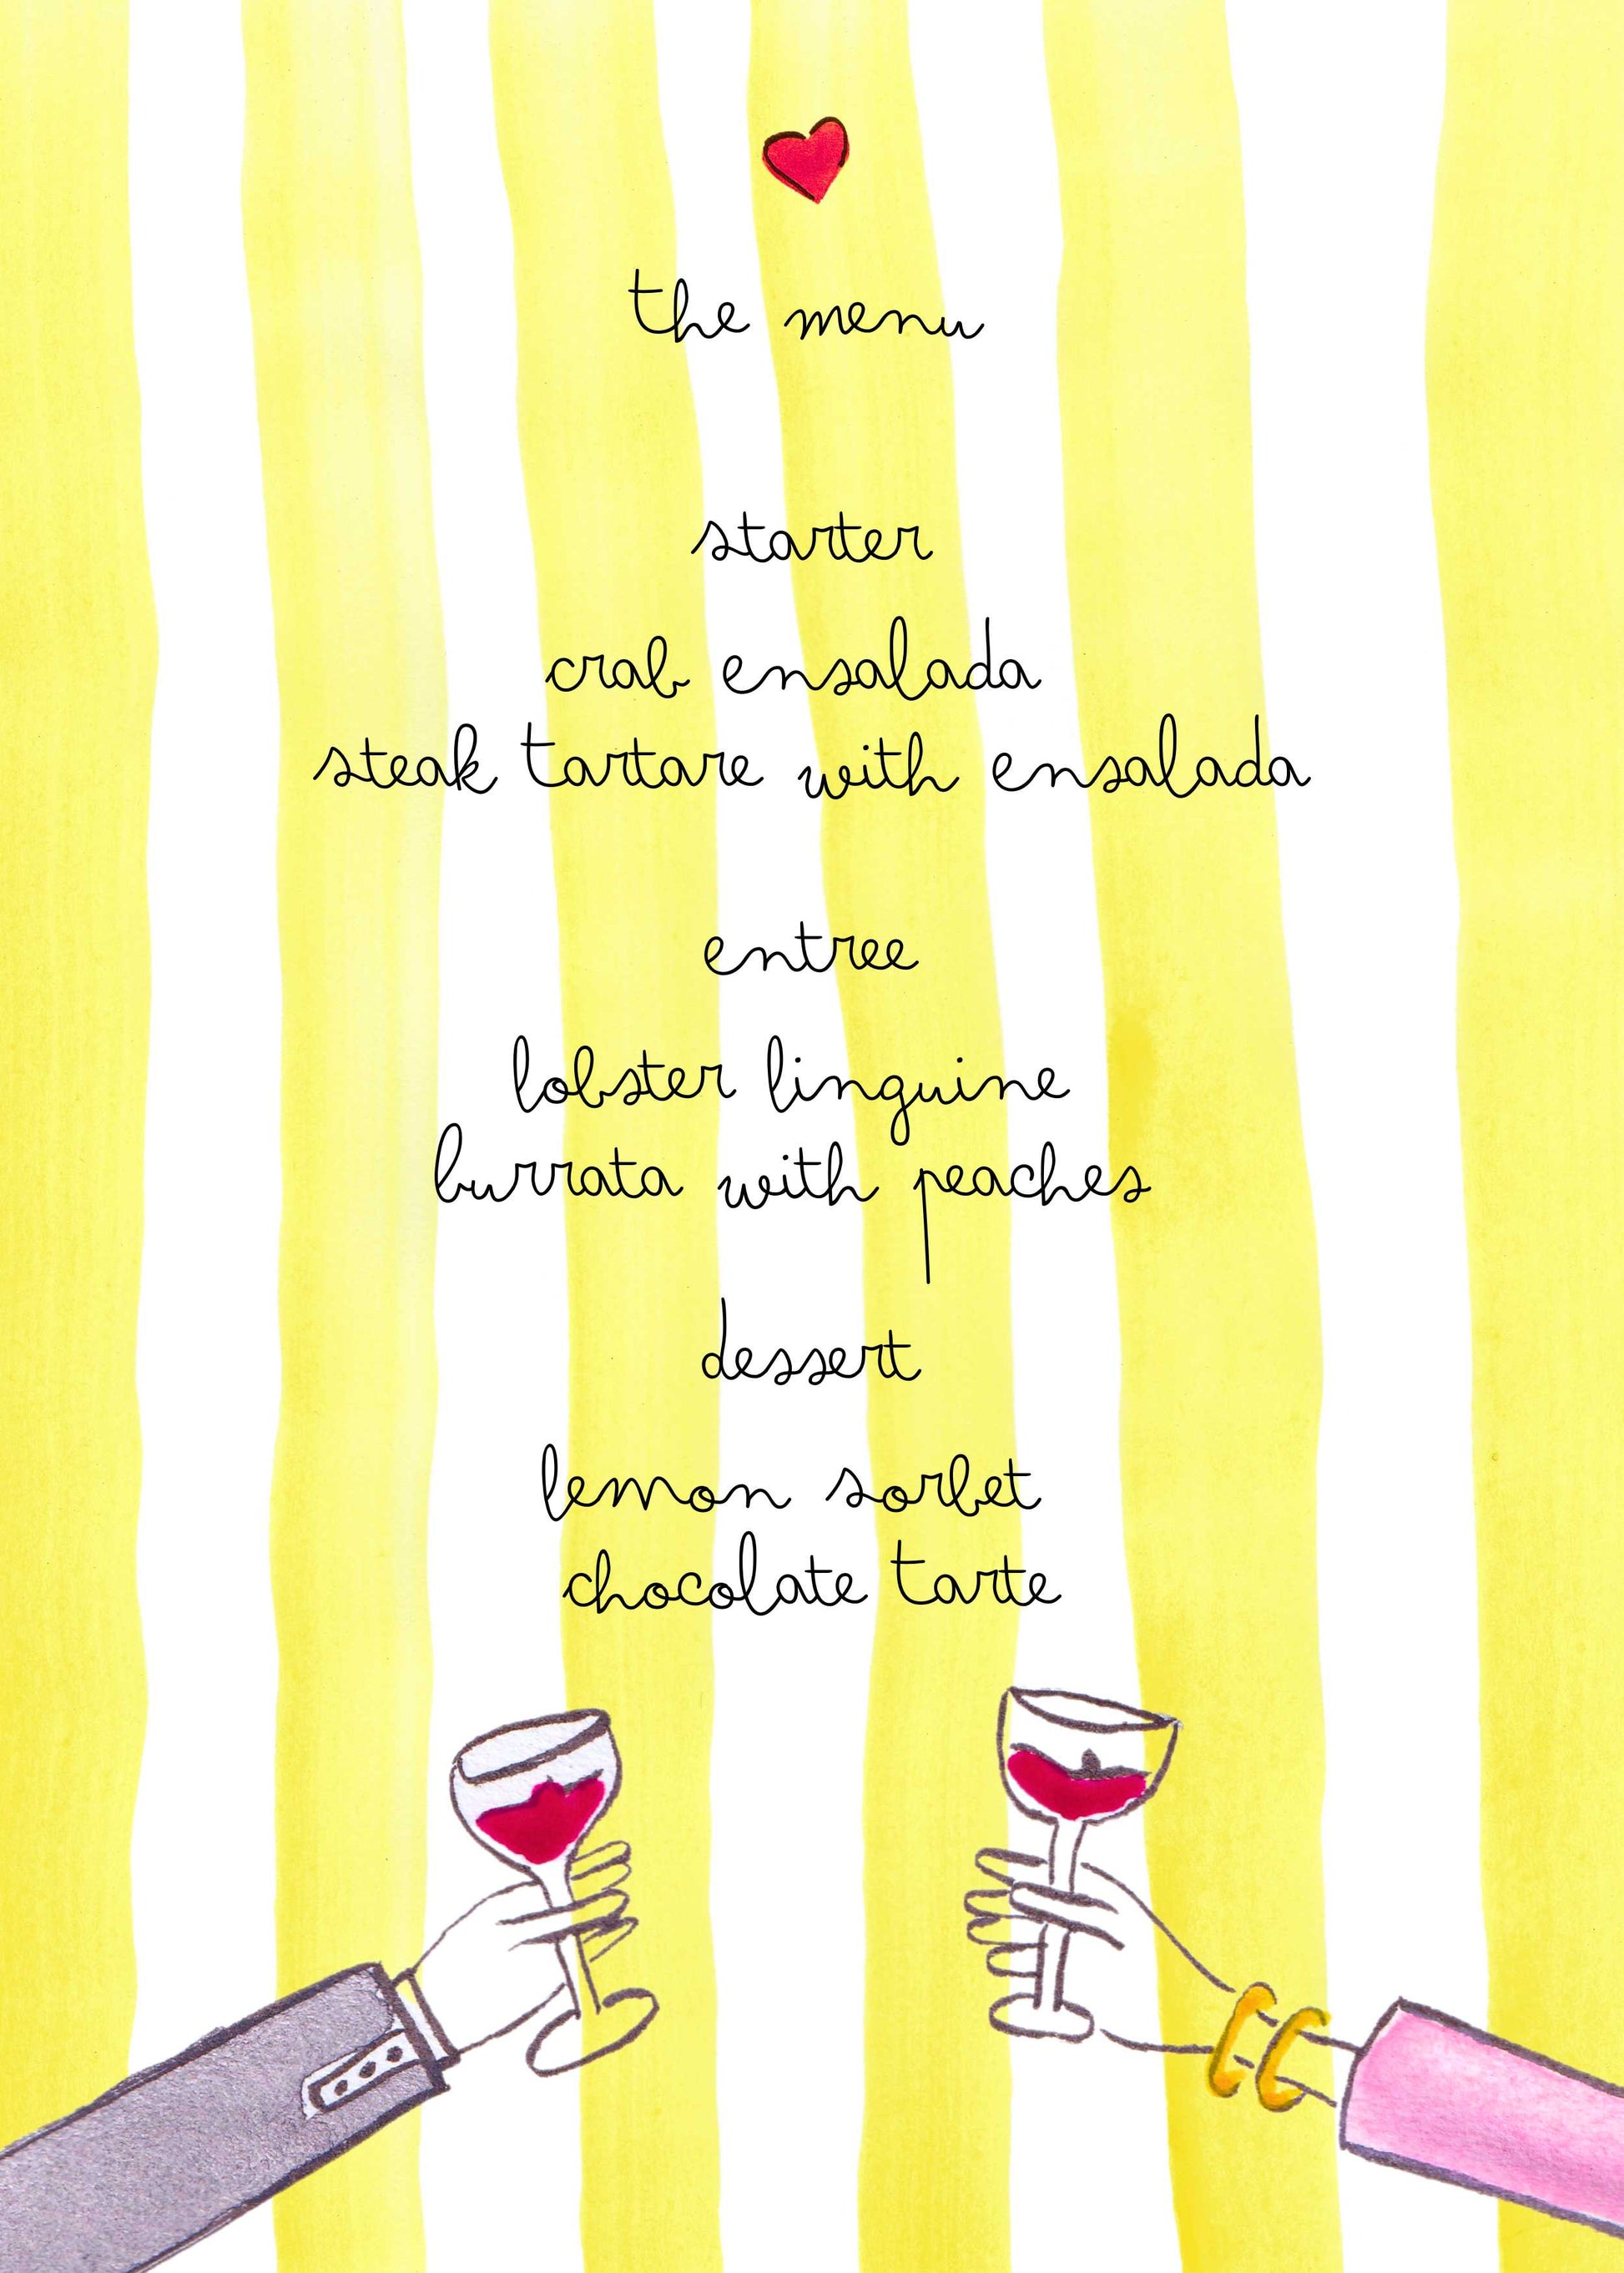 the menu
starter
crab ensalada
steak tartare with ensalada
entree
lobster linguine
burrata with peaches
dessert
lemon sorbet
chocolate tarte